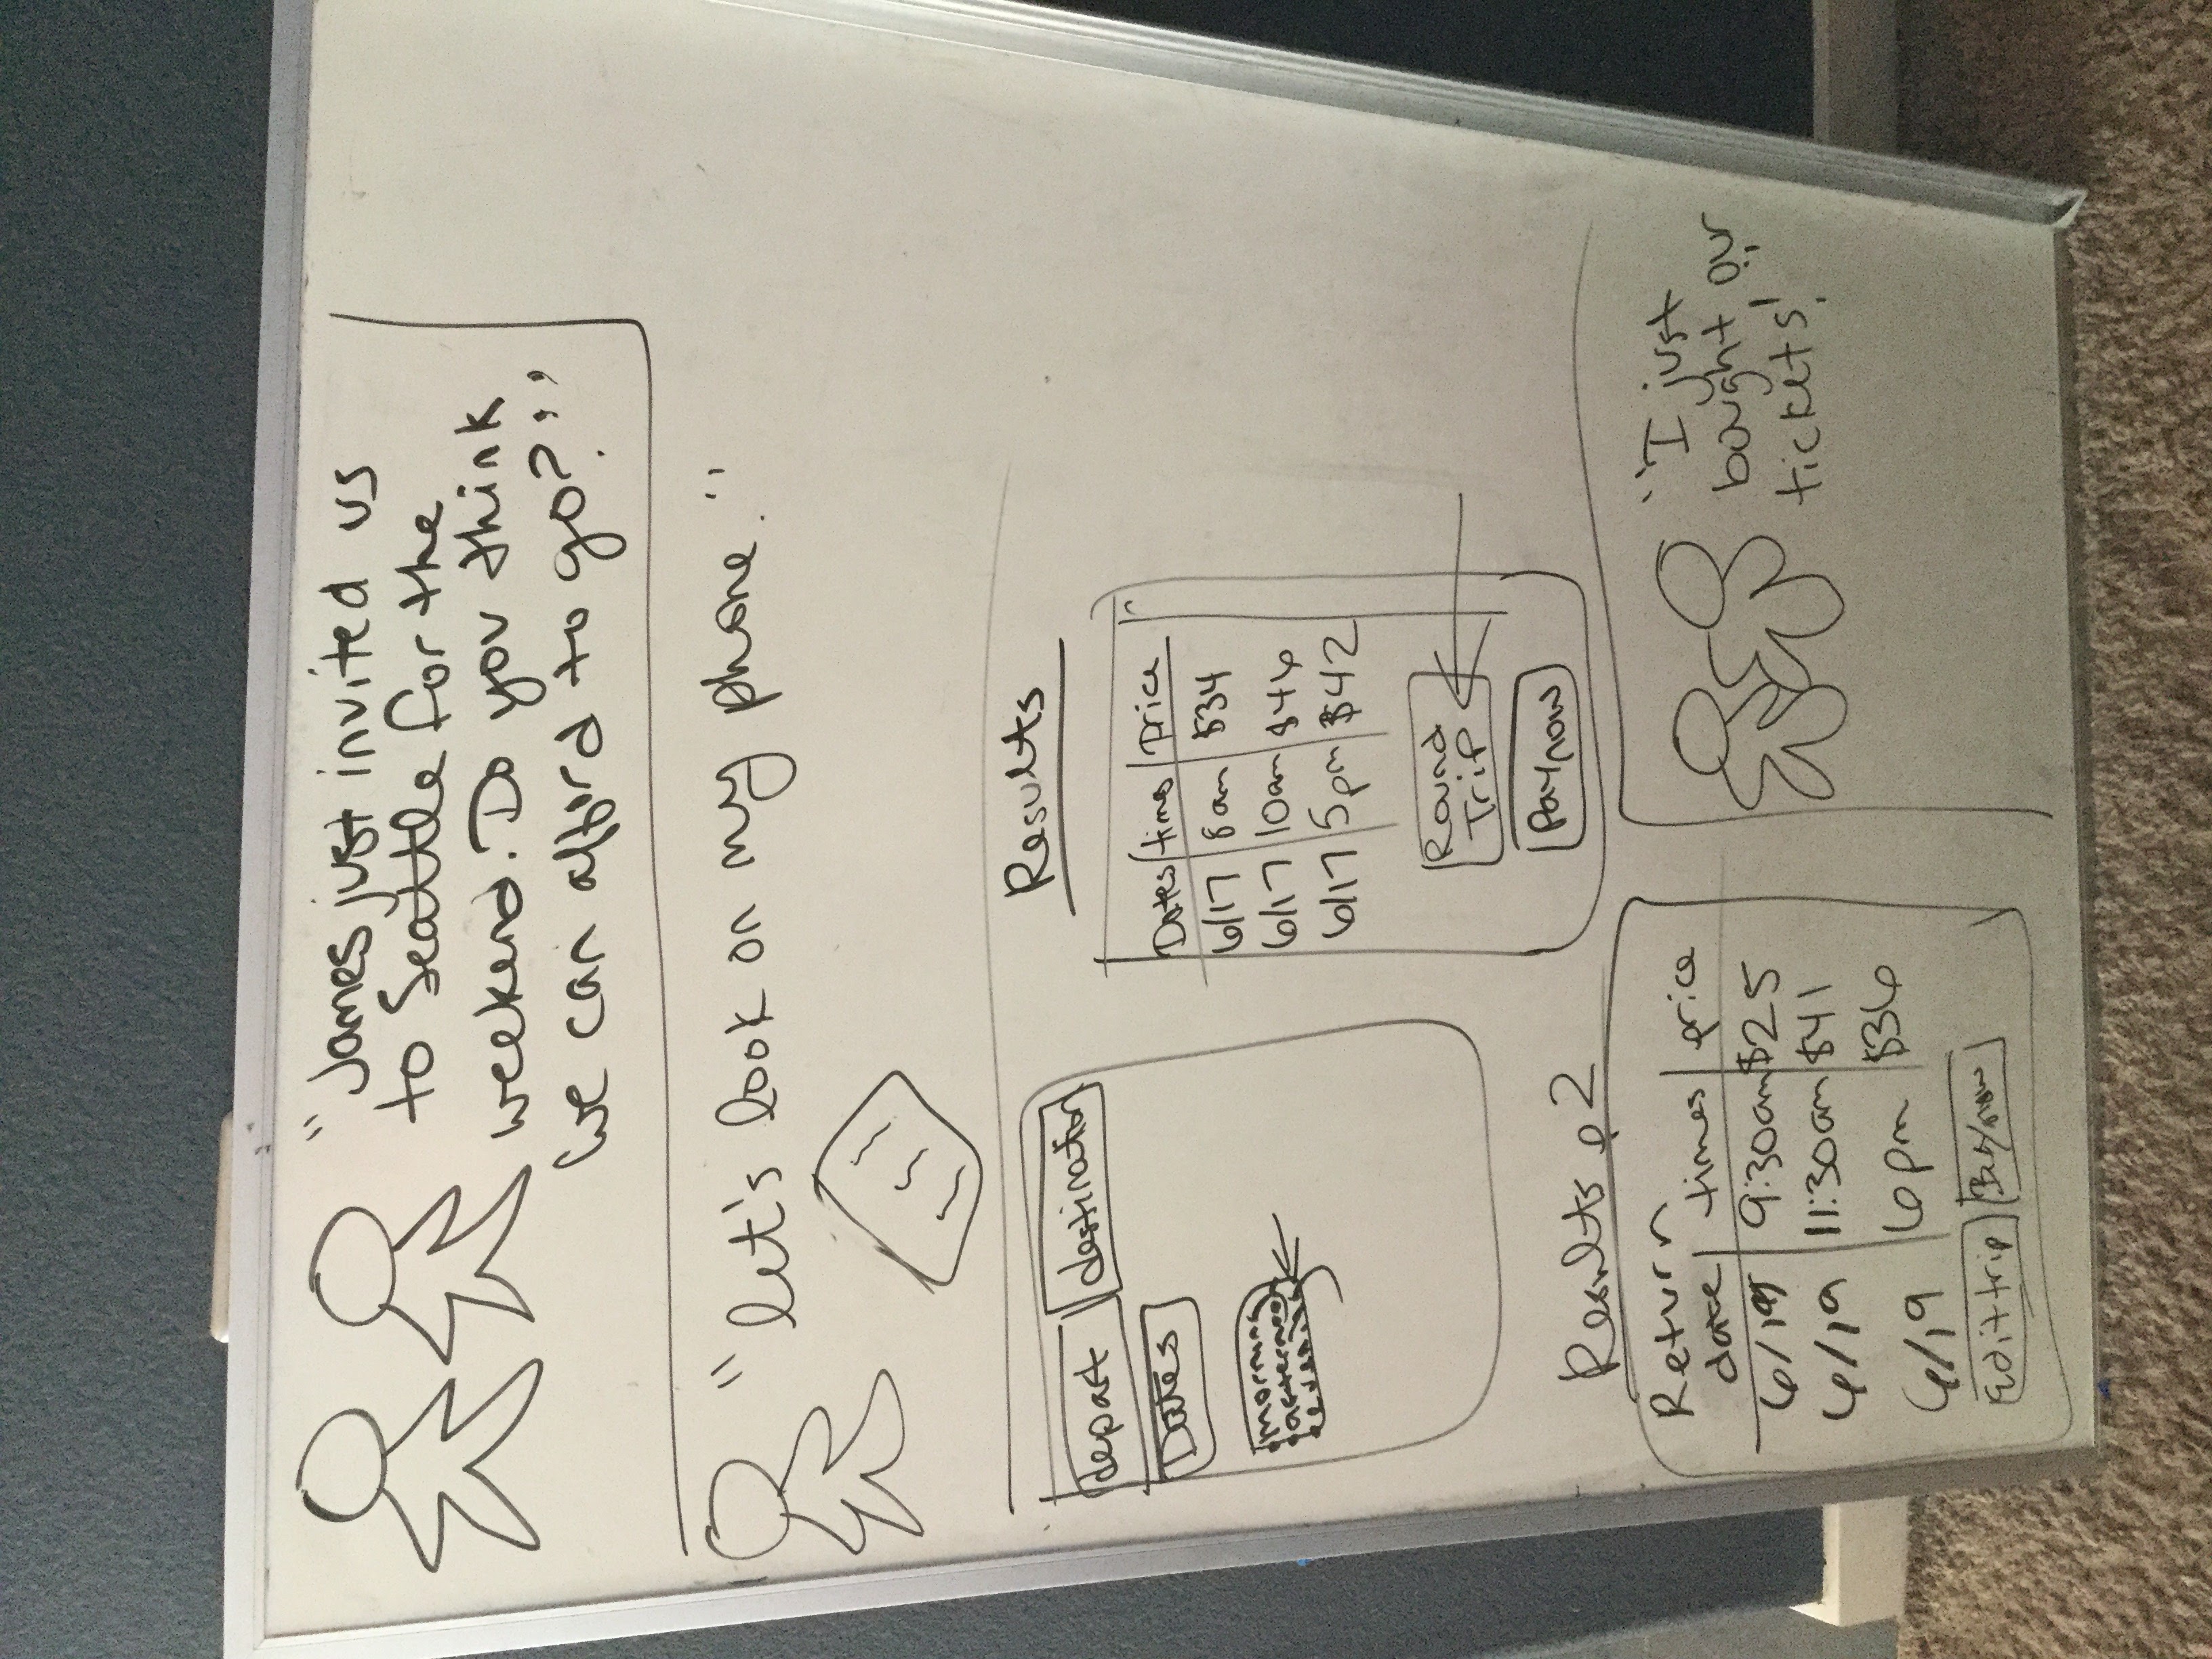 "James just invited us
to Seattle for the
weekend. Do you think
we can afford to go?"
"let's look on my phone."
depart destination
Dates
morning
afternoon
evening
Results
Dates times Price
6/17 8am $34
6/17 10am $46
6/17 5pm $42
Round
Trip
Pay now
Results p2
Return
date times price
6/19 9:30am $25
6/19 11:30am $41
6/19 6pm $36
Edit trip Buy now
"I just
bought our
tickets!"